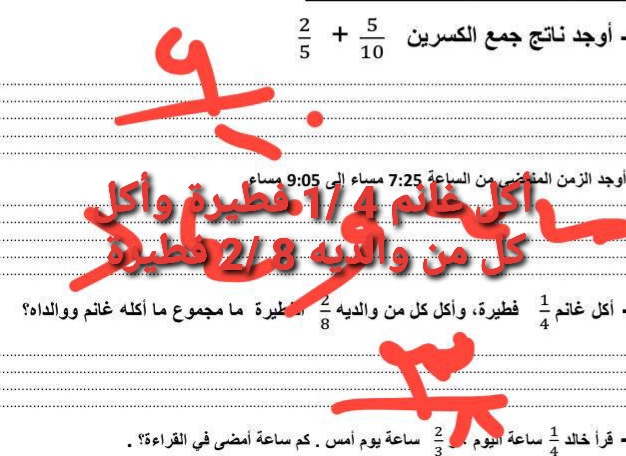 - أوجد ناتج جمع الكسرين 5/10 + 2/5
أوجد الزمن المنقضي من الساعة 7:25 مساء إلى 9:05 مساء
أكل غانم 4 /1 فطيرة وأكل
كل من والديه 8 /2 فطيرة
- أكل غانم 1/4 فطيرة، وأكل كل من والديه 2/8 فطيرة ما مجموع ما أكله غانم ووالداه؟
- قرأ خالد 1/4 ساعة اليوم و 2/3 ساعة يوم أمس . كم ساعة أمضى في القراءة؟ .